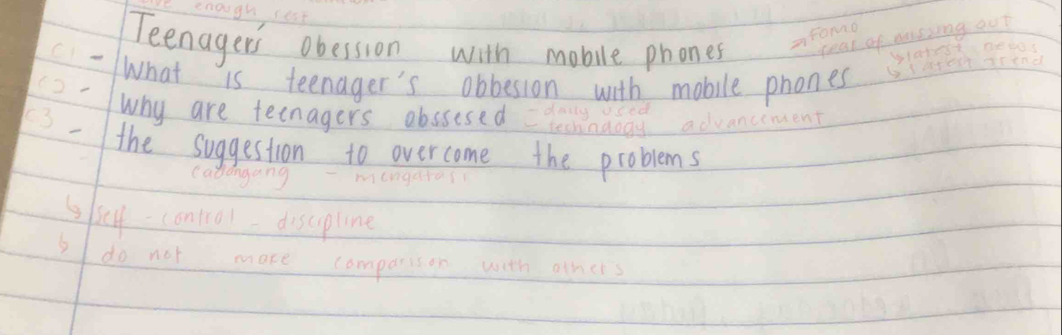 enough rest
Teenager's obession with mobile phones → Fomo
fear of missing out
C1 - What is teenager's obbesion with mobile phones ↳ latest news
↳ latest trend
C2 - why are teenagers obssesed - daily used
- technology advancement
C3 - the suggestion to overcome the problems
cadangang - mengatasi
↳ self-control - discipline
↳ do not make comparison with others